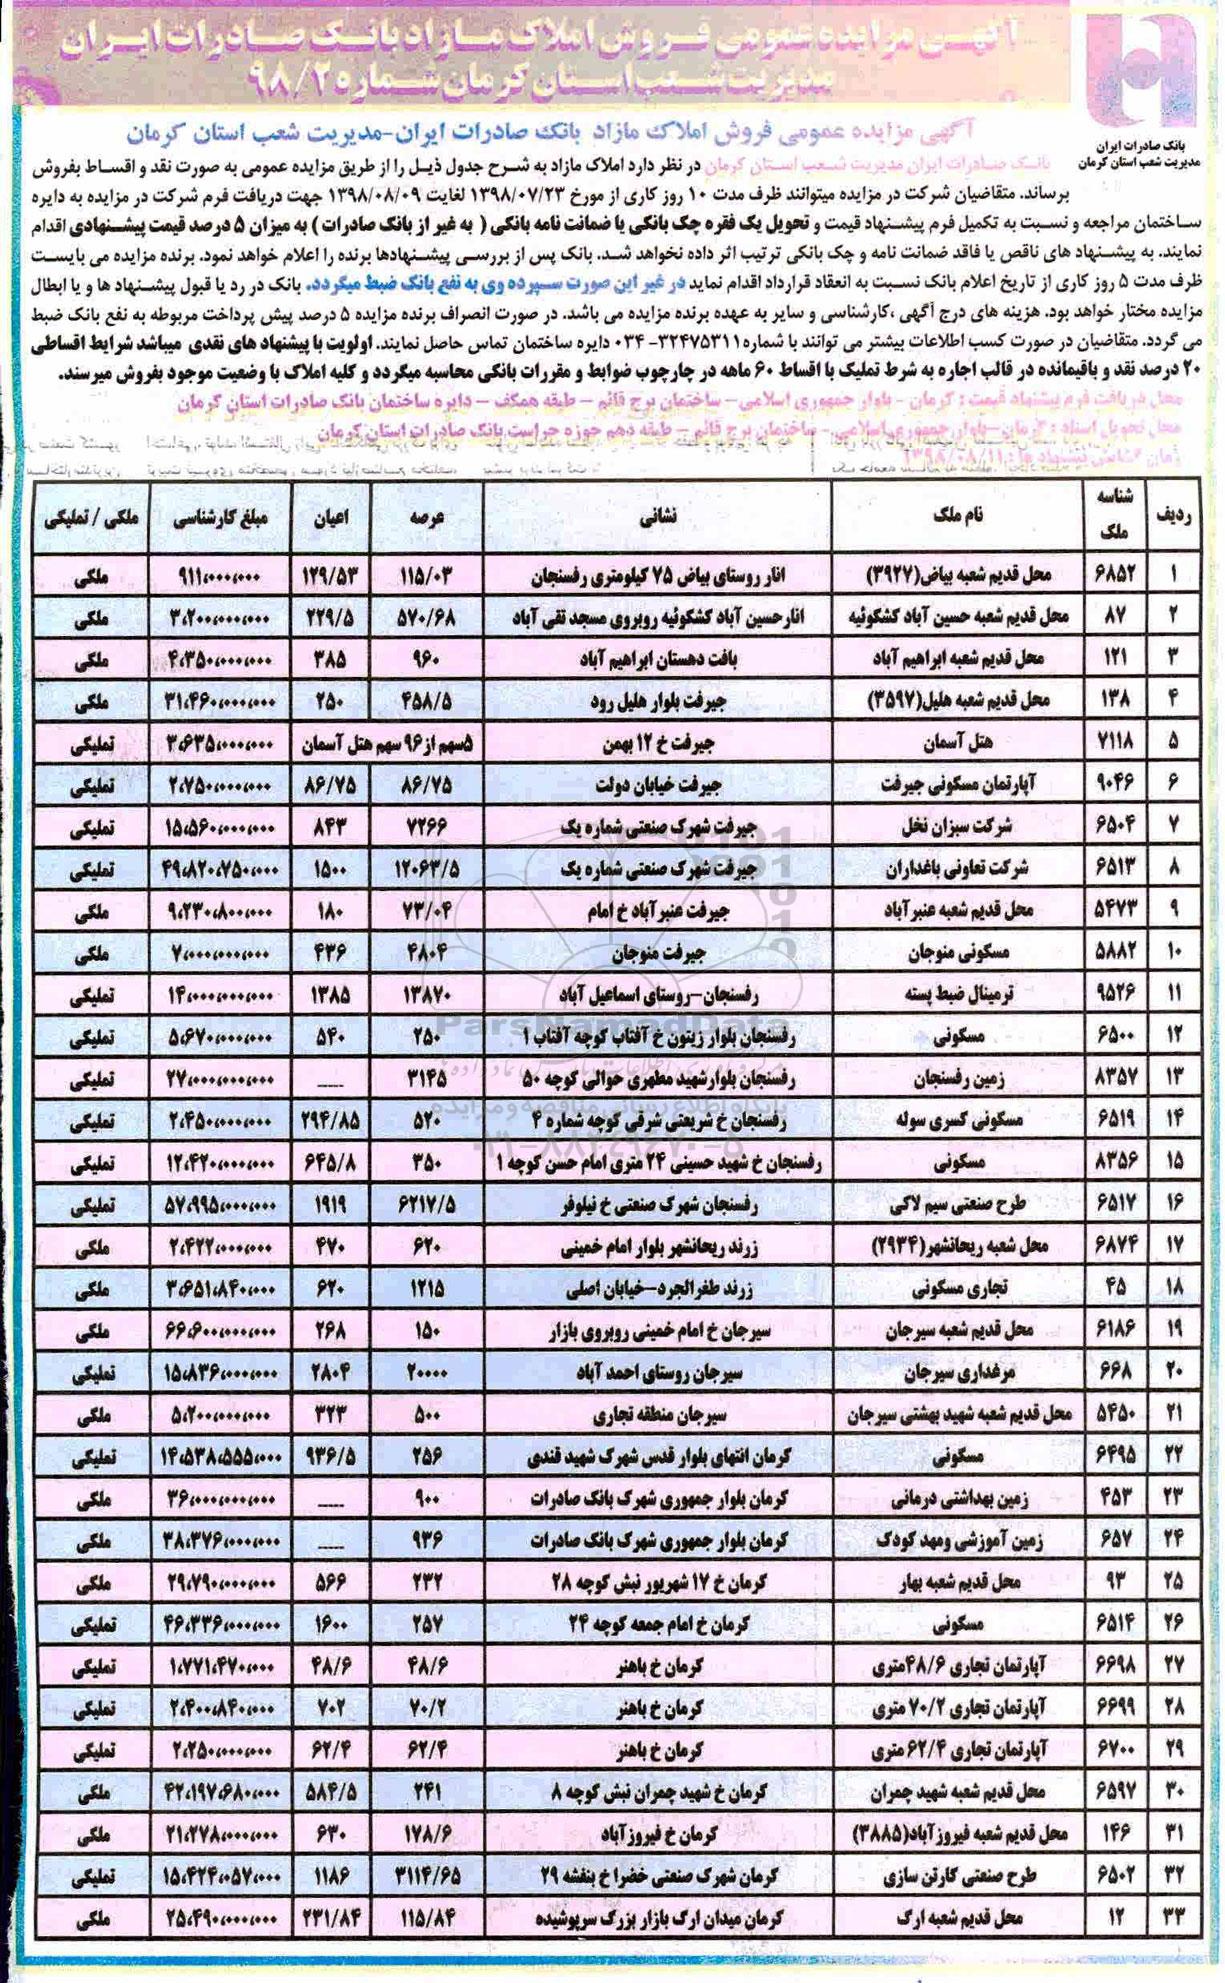 آگهی مزایده عمومی فروش املاک مازاد بانک صادرات ایران
مدیریت شعب استان کرمان شماره ۹۸/۲
بانک صادرات ایران
مدیریت شعب استان کرمان
آگهی مزایده عمومی فروش املاک مازاد بانک صادرات ایران-مدیریت شعب استان کرمان
بانک صادرات ایران مدیریت شعب استان کرمان در نظر دارد املاک مازاد به شرح جدول ذیل را از طریق مزایده عمومی به صورت نقد و اقساط بفروش
برساند. متقاضیان شرکت در مزایده میتوانند ظرف مدت ۱۰ روز کاری از مورخ ۱۳۹۸/۰۷/۲۳ لغایت ۱۳۹۸/۰۸/۰۹ جهت دریافت فرم شرکت در مزایده به دایره
ساختمان مراجعه و نسبت به تکمیل فرم پیشنهاد قیمت و تحویل یک فقره چک بانکی یا ضمانت نامه بانکی ( به غیر از بانک صادرات ) به میزان ۵ درصد قیمت پیشنهادی اقدام
نمایند. به پیشنهاد های ناقص یا فاقد ضمانت نامه و چک بانکی ترتیب اثر داده نخواهد شد. بانک پس از بررسی پیشنهادها برنده را اعلام خواهد نمود. برنده مزایده می بایست
ظرف مدت ۵ روز کاری از تاریخ اعلام بانک نسبت به انعقاد قرارداد اقدام نماید در غیر این صورت سپرده وی به نفع بانک ضبط میگردد. بانک در رد یا قبول پیشنهاد ها و یا ابطال
مزایده مختار خواهد بود. هزینه های درج آگهی ،کارشناسی و سایر به عهده برنده مزایده می باشد. در صورت انصراف برنده مزایده ۵ درصد پیش پرداخت مربوطه به نفع بانک ضبط
می گردد. متقاضیان در صورت کسب اطلاعات بیشتر می توانند با شماره ۳۲۴۷۵۳۱۱-۰۳۴ دایره ساختمان تماس حاصل نمایند. اولویت با پیشنهاد های نقدی میباشد شرایط اقساطی
۲۰ درصد نقد و باقیمانده در قالب اجاره به شرط تملیک با اقساط ۶۰ ماهه در چارچوب ضوابط و مقررات بانکی محاسبه میگردد و کلیه املاک با وضعیت موجود بفروش میرسند.
محل دریافت فرم پیشنهاد قیمت : کرمان - بلوار جمهوری اسلامی- ساختمان برج قائم - طبقه همکف - دایره ساختمان بانک صادرات استان کرمان
محل تحویل اسناد : کرمان-بلوار جمهوری اسلامی- ساختمان برج قائم - طبقه دهم حوزه حراست بانک صادرات استان کرمان
زمان گشایش پیشنهاد ها : ۱۳۹۸/۰۸/۱۱
ردیف شناسه ملک نام ملک نشانی عرصه اعیان مبلغ کارشناسی ملکی / تملیکی
۱ ۶۸۵۲ محل قدیم شعبه بیاض(۳۹۲۷) انار روستای بیاض ۷۵ کیلومتری رفسنجان ۱۱۵/۰۳ ۱۲۹/۵۳ ۹۱۱،۰۰۰،۰۰۰ ملکی
۲ ۸۷ محل قدیم شعبه حسین آباد کشکوئیه انارحسین آباد کشکوئیه روبروی مسجد تقی آباد ۵۷۰/۶۸ ۲۲۹/۵ ۳،۲۰۰،۰۰۰،۰۰۰ ملکی
۳ ۱۲۱ محل قدیم شعبه ابراهیم آباد بافت دهستان ابراهیم آباد ۹۶۰ ۳۸۵ ۴،۳۵۰،۰۰۰،۰۰۰ ملکی
۴ ۱۳۸ محل قدیم شعبه هلیل(۳۵۹۷) جیرفت بلوار هلیل رود ۴۵۸/۵ ۲۵۰ ۳۱،۴۶۰،۰۰۰،۰۰۰ ملکی
۵ ۷۱۱۸ هتل آسمان جیرفت خ ۱۲ بهمن ۵سهم از ۹۶ سهم هتل آسمان ۳،۶۳۵،۰۰۰،۰۰۰ تملیکی
۶ ۹۰۴۶ آپارتمان مسکونی جیرفت جیرفت خیابان دولت ۸۶/۷۵ ۸۶/۷۵ ۲،۷۵۰،۰۰۰،۰۰۰ تملیکی
۷ ۶۵۰۴ شرکت سبزان نخل جیرفت شهرک صنعتی شماره یک ۷۲۶۶ ۸۴۳ ۱۵،۵۶۰،۰۰۰،۰۰۰ تملیکی
۸ ۶۵۱۳ شرکت تعاونی باغداران جیرفت شهرک صنعتی شماره یک ۱۲۰۶۳/۵ ۱۵۰۰ ۴۹،۸۲۰،۷۵۰،۰۰۰ تملیکی
۹ ۵۴۷۳ محل قدیم شعبه عنبرآباد جیرفت عنبرآباد خ امام ۷۳/۰۴ ۱۸۰ ۹،۲۳۰،۸۰۰،۰۰۰ ملکی
۱۰ ۵۸۸۲ مسکونی منوجان جیرفت منوجان ۴۸۰۴ ۴۳۶ ۷،۰۰۰،۰۰۰،۰۰۰ ملکی
۱۱ ۹۵۲۶ ترمینال ضبط پسته رفسنجان-روستای اسماعیل آباد ۱۳۸۷۰ ۱۳۸۵ ۱۴،۰۰۰،۰۰۰،۰۰۰ تملیکی
۱۲ ۶۵۰۰ مسکونی رفسنجان بلوار زیتون خ آفتاب کوچه آفتاب ۱ ۲۵۰ ۵۴۰ ۵،۶۷۰،۰۰۰،۰۰۰ تملیکی
۱۳ ۸۳۵۷ زمین رفسنجان رفسنجان بلوارشهید مطهری حوالی کوچه ۵۰ ۳۱۴۵ ---- ۲۷،۰۰۰،۰۰۰،۰۰۰ تملیکی
۱۴ ۶۵۱۹ مسکونی کسری سوله رفسنجان خ شریعتی شرقی کوچه شماره ۴ ۵۲۰ ۲۹۴/۸۵ ۲،۴۵۰،۰۰۰،۰۰۰ تملیکی
۱۵ ۸۳۵۶ مسکونی رفسنجان خ شهید حسینی ۲۴ متری امام حسن کوچه ۱ ۳۵۰ ۶۴۵/۸ ۱۲،۴۲۰،۰۰۰،۰۰۰ تملیکی
۱۶ ۶۵۱۷ طرح صنعتی سیم لاکی رفسنجان شهرک صنعتی خ نیلوفر ۶۲۱۷/۵ ۱۹۱۹ ۵۷،۹۹۵،۰۰۰،۰۰۰ تملیکی
۱۷ ۶۸۷۴ محل شعبه ریحانشهر(۲۹۳۴) زرند ریحانشهر بلوار امام خمینی ۶۲۰ ۴۷۰ ۲،۴۲۲،۰۰۰،۰۰۰ ملکی
۱۸ ۴۵ تجاری مسکونی زرند طغرالجرد-خیابان اصلی ۱۲۱۵ ۶۲۰ ۳،۶۵۱،۸۴۰،۰۰۰ ملکی
۱۹ ۶۱۸۶ محل قدیم شعبه سیرجان سیرجان خ امام خمینی روبروی بازار ۱۵۰ ۲۶۸ ۶۶،۶۰۰،۰۰۰،۰۰۰ ملکی
۲۰ ۶۶۸ مرغداری سیرجان سیرجان روستای احمد آباد ۲۰۰۰۰ ۲۸۰۴ ۱۵،۸۳۶،۰۰۰،۰۰۰ تملیکی
۲۱ ۵۴۵۰ محل قدیم شعبه شهید بهشتی سیرجان سیرجان منطقه تجاری ۵۰۰ ۳۲۳ ۵،۲۰۰،۰۰۰،۰۰۰ ملکی
۲۲ ۶۴۹۵ مسکونی کرمان انتهای بلوار قدس شهرک شهید قندی ۲۵۶ ۹۳۶/۵ ۱۴،۵۳۸،۵۵۵،۰۰۰ تملیکی
۲۳ ۴۵۳ زمین بهداشتی درمانی کرمان بلوار جمهوری شهرک بانک صادرات ۹۰۰ ---- ۳۶،۰۰۰،۰۰۰،۰۰۰ ملکی
۲۴ ۶۵۷ زمین آموزشی ومهد کودک کرمان بلوار جمهوری شهرک بانک صادرات ۹۳۶ ---- ۳۸،۳۷۶،۰۰۰،۰۰۰ ملکی
۲۵ ۹۳ محل قدیم شعبه بهار کرمان خ ۱۷ شهریور نبش کوچه ۲۸ ۲۳۲ ۵۶۶ ۲۹،۷۹۰،۰۰۰،۰۰۰ ملکی
۲۶ ۶۵۱۴ مسکونی کرمان خ امام جمعه کوچه ۲۴ ۲۵۷ ۱۶۰۰ ۴۶،۳۳۶،۰۰۰،۰۰۰ تملیکی
۲۷ ۶۶۹۸ آپارتمان تجاری ۴۸/۶متری کرمان خ باهنر ۴۸/۶ ۴۸/۶ ۱،۷۷۱،۴۷۰،۰۰۰ تملیکی
۲۸ ۶۶۹۹ آپارتمان تجاری ۷۰/۲ متری کرمان خ باهنر ۷۰/۲ ۷۰۲ ۲،۴۰۰،۸۴۰،۰۰۰ تملیکی
۲۹ ۶۷۰۰ آپارتمان تجاری ۶۲/۴ متری کرمان خ باهنر ۶۲/۴ ۶۲/۴ ۲،۲۵۰،۰۰۰،۰۰۰ تملیکی
۳۰ ۶۵۹۷ محل قدیم شعبه شهید چمران کرمان خ شهید چمران نبش کوچه ۸ ۲۴۱ ۵۸۴/۵ ۴۲،۱۹۷،۶۸۰،۰۰۰ ملکی
۳۱ ۱۴۶ محل قدیم شعبه فیروزآباد(۳۸۸۵) کرمان خ فیروزآباد ۱۷۸/۶ ۶۳۰ ۲۱،۲۷۸،۰۰۰،۰۰۰ ملکی
۳۲ ۶۵۰۲ طرح صنعتی کارتن سازی کرمان شهرک صنعتی خضرا خ بنفشه ۲۹ ۳۱۱۴/۶۵ ۱۱۸۶ ۱۵،۴۲۴،۰۵۷،۰۰۰ تملیکی
۳۳ ۱۲ محل قدیم شعبه ارک کرمان میدان ارک بازار بزرگ سرپوشیده ۱۱۵/۸۴ ۲۳۱/۸۴ ۲۵،۴۹۰،۰۰۰،۰۰۰ ملکی
ParsNamadData
پایگاه اطلاع رسانی مناقصه و مزایده
۰۲۱-۸۸۳۴۹۶۷۰-۵